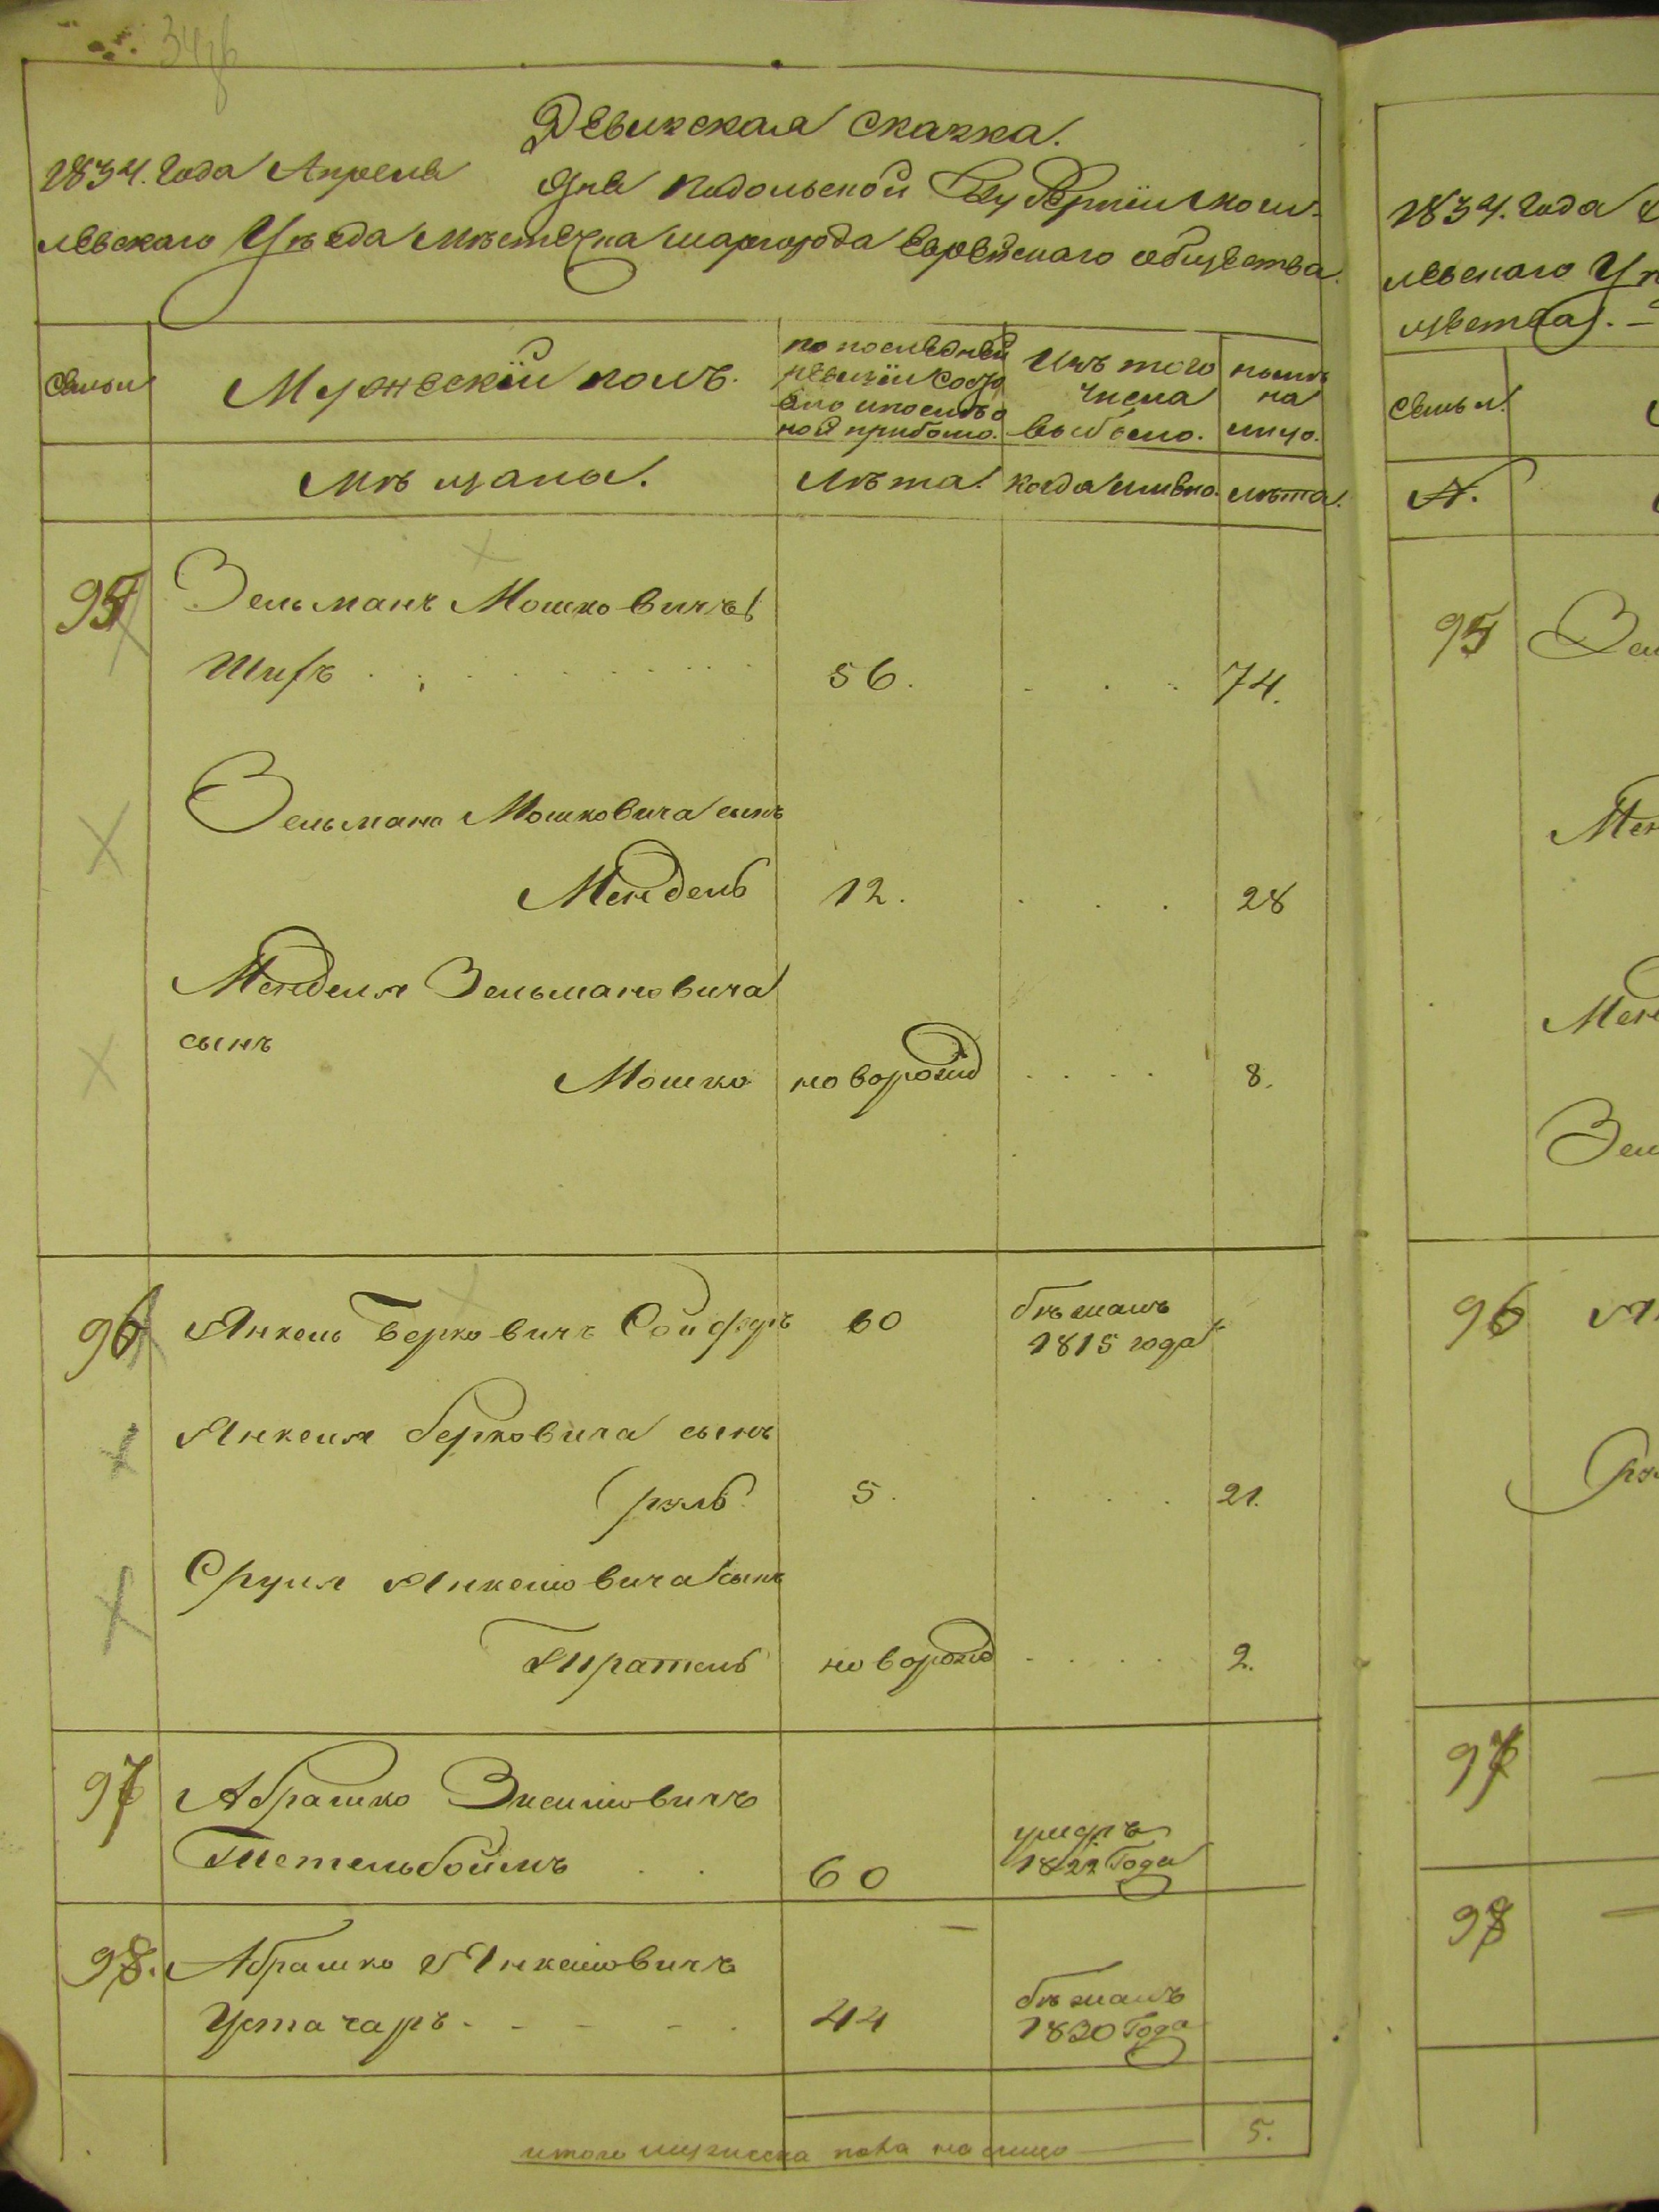 Ревизская сказка.
1834. Года Апреля дня Подольской Губернiи Моги-
левскаго Уѣзда Мѣстечка шаргорода Еврейскаго общества.
Семьи
Мужескiй полъ.
по последней
ревизiи состо
яло и после о
ной прибыло.
Изъ того
числа
выбыло.
нынѣ
на
лицо.
Мѣщаны.
Лѣта.
когда имянно.
лѣта.
95
Зельманъ Мошковичъ
Шифъ
56.
74.
Зельмана Мошковича сынъ
Мендель
12.
28
Менделя Зельмановича
сынъ
Мошко
новорожд
8.
96
Янкель Берковичъ Сойферъ
60
бѣжалъ
1815 года
Янкеля берковича сынъ
Сруль
5.
21.
Сруля Янкелiовича сынъ
новорожд
2.
97
Абрашко
Тетельбоймъ
60
умеръ
1822 Года
98.
Абрашко Янкелiовичъ
Устачаръ
44
бѣжалъ
1830 Года
итого мужеска пола на лицо
5.
1834. Года
левскаго Уѣ
щества. -
Семьи.
N.
95
Зел
Мен
Мен
Зел
96
Ян
Сру
97
98